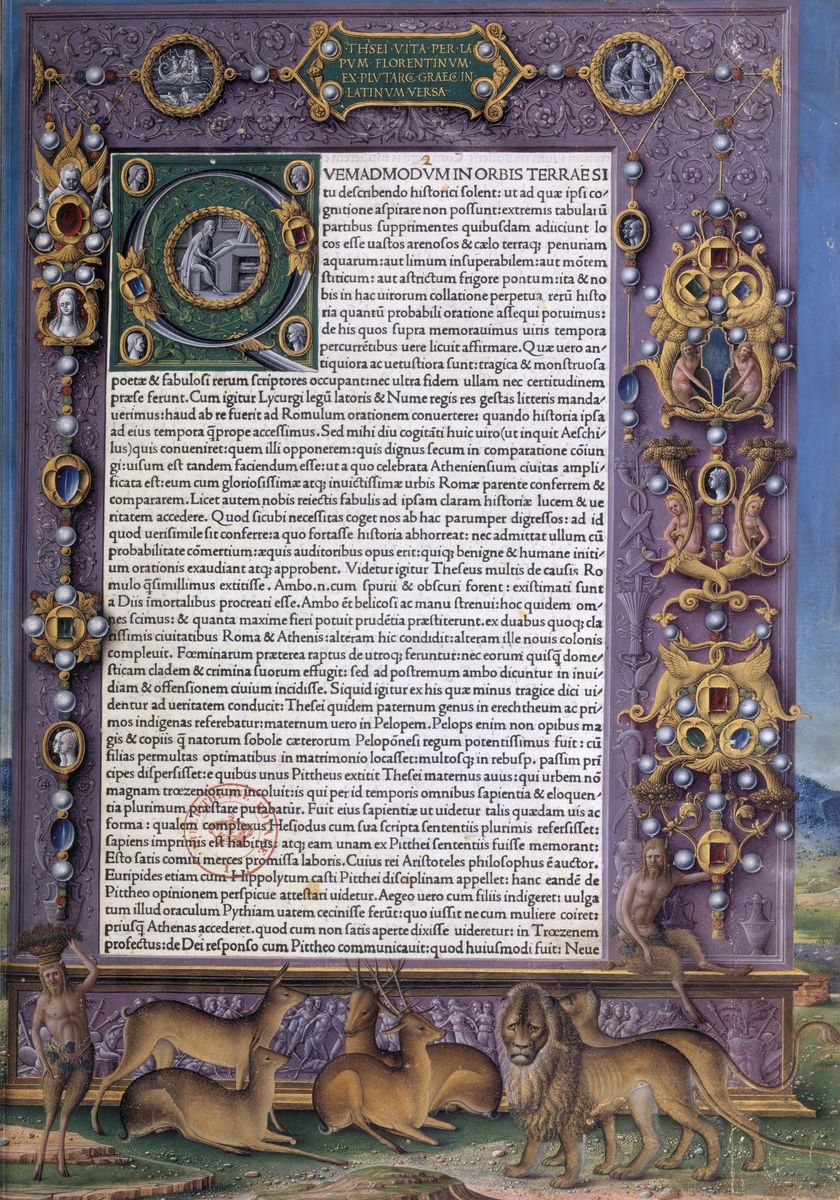 ·THSEI·VITA·PER·LA
PVM·FLORENTINVM·
EX·PLVTARC·GRAEC·IN
LATINVM VERSA··
2
Q
VEMADMODVM IN ORBIS TERRAE SI
tu describendo historici solent: ut ad quæ ipsi co
gnitione aspirare non possunt: extremis tabularū
partibus supprimentes quibusdam adiiciunt lo
cos esse uastos arenosos & cælo terraq; penuriam
aquarum: aut limum insuperabilem: aut mōtem
stiticum: aut astrictum frigore pontum: ita & no
bis in hac uirorum collatione perpetua rerū histo
ria quantū probabili oratione assequi potuimus:
de his quos supra memorauimus uiris tempora
percurrētibus uere licuit affirmare. Quæ uero an
tiquiora ac uetustiora sunt: tragica & monstruosa
poetæ & fabulosi rerum scriptores occupant: nec ultra fidem ullam nec certitudinem
præ se ferunt. Cum igitur Lycurgi legū latoris & Nume regis res gestas litteris manda
uerimus: haud ab re fuerit ad Romulum orationem conuertere: quando historia ipsa
ad eius tempora q̄prope accessimus. Sed mihi diu cogitāti huic uiro (ut inquit Aeschi
lus) quis conueniret: quem illi opponerem: quis dignus secum in comparatione cōiun
gi: uisum est tandem faciendum esse: ut a quo celebrata Atheniensium ciuitas ampli
ficata est: eum cum gloriosissimæ atq; inuictissimæ urbis Romæ parente conferrem &
compararem. Licet autem nobis reiectis fabulis ad ipsam claram historiæ lucem & ue
ritatem accedere. Quod sicubi necessitas coget nos ab hac parumper digressos: ad id
quod uerisimile sit conferre: a quo fortasse historia abhorreat: nec admittat ullum cū
probabilitate cōmertium: æquis auditoribus opus erit: quiq; benigne & humane initi
um orationis exaudiant atq; approbent. Videtur igitur Theseus multis de causis Ro
mulo q̄simillimus extitisse. Ambo .n. cum spurii & obscuri forent: existimati sunt
a Diis īmortalibus procreati esse. Ambo ēt belicosi ac manu strenui: hoc quidem om
nes scimus: & quanta maxime fieri potuit prudētia præstiterunt. ex duabus quoq; cla
rissimis ciuitatibus Roma & Athenis: alteram hic condidit: alteram ille nouis colonis
compleuit. Fœminarum præterea raptus de utroq; feruntur: nec eorum quisq̄ dome
sticam cladem & crimina suorum effugit: sed ad postremum ambo dicuntur in inui
diam & offensionem ciuium incidisse. Siquid igitur ex his quæ minus tragice dici ui
dentur ad ueritatem conducit: Thesei quidem paternum genus in erechtheum ac pri
mos indigenas referebatur: maternum uero in Pelopem. Pelops enim non opibus ma
gis & copiis q̄ natorum sobole cæterorum Pelopōnesi regum potentissimus fuit: cū
filias permultas optimatibus in matrimonio locasset: multosq; in rebusp. passim prī
cipes dispersisset: e quibus unus Pittheus extitit Thesei maternus auus: qui urbem nō
magnam trœzeniorum incoluit: is qui per id temporis omnibus sapientia & eloquen
tia plurimum præstare putabatur. Fuit eius sapientiæ ut uidetur talis quædam uis ac
forma: qualem complexus Hesiodus cum sua scripta sententiis plurimis refersisset:
sapiens imprimis est habitus. atq; eam unam ex Pitthei sententiis fuisse memorant:
Esto satis comiti merces promissa laboris. Cuius rei Aristoteles philosophus ē auctor.
Euripides etiam cum Hippolytum casti Pitthei disciplinam appellet: hanc eandē de
Pittheo opinionem perspicue attestari uidetur. Aegeo uero cum filiis indigeret: uulga
tum illud oraculum Pythiam uatem cecinisse ferūt: quo iussit ne cum muliere coiret:
priusq̄ Athenas accederet. quod cum non satis aperte dixisse uideretur: in Trœzenem
profectus: de Dei responso cum Pittheo communicauit: quod huiusmodi fuit: Neue